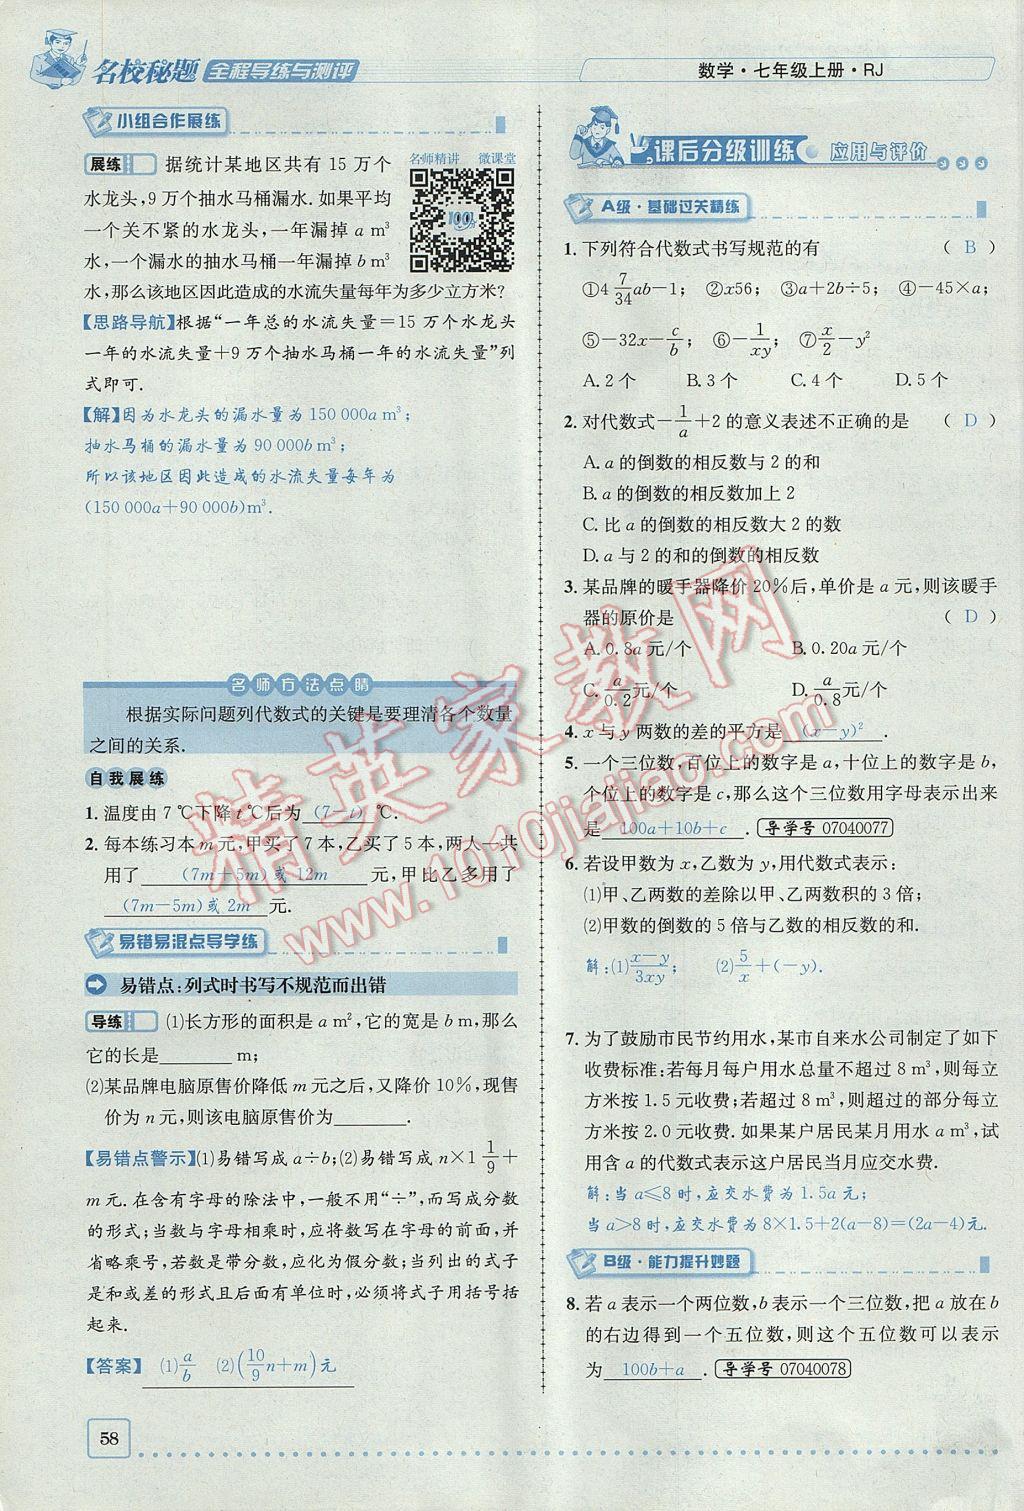 名校秘题 全程导练与测评
数学·七年级上册·RJ
小组合作展练
名师精讲 微课堂
展练 据统计某地区共有 15 万个
水龙头,9 万个抽水马桶漏水.如果平均
一个关不紧的水龙头,一年漏掉 a m³
水,一个漏水的抽水马桶一年漏掉 b m³
水,那么该地区因此造成的水流失量每年为多少立方米?
【思路导航】根据“一年总的水流失量=15 万个水龙头
一年的水流失量+9 万个抽水马桶一年的水流失量”列
式即可.
【解】因为水龙头的漏水量为 150 000a m³;
抽水马桶的漏水量为 90 000b m³;
所以该地区因此造成的水流失量每年为
(150 000a+90 000b)m³.
名师方法点睛
根据实际问题列代数式的关键是要理清各个数量
之间的关系.
自我展练
1. 温度由 7 ℃下降 t ℃后为 (7-t) ℃.
2. 每本练习本 m 元,甲买了 7 本,乙买了 5 本,两人一共
用了 (7m+5m)或 12m 元,甲比乙多用了
(7m-5m)或 2m 元.
易错易混点导学练
易错点:列式时书写不规范而出错
导练 (1)长方形的面积是 a m²,它的宽是 b m,那么
它的长是________ m;
(2)某品牌电脑原售价降低 m 元之后,又降价 10%,现售
价为 n 元,则该电脑原售价为________.
【易错点警示】(1)易错写成 a÷b;(2)易错写成 n×1 1/9+
m 元.在含有字母的除法中,一般不用“÷”,而写成分数
的形式;当数与字母相乘时,应将数写在字母的前面,并
省略乘号,若数是带分数,应化为假分数;当列出的式子
是和或差的形式且后面有单位时,必须将式子用括号括
起来.
【答案】 (1) a/b (2)(10/9 n+m)元
58
课后分级训练 应用与评价
A级·基础过关精练
1. 下列符合代数式书写规范的有 ( B )
①4 7/34 ab-1; ②x56; ③a+2b÷5; ④-45×a;
⑤-32x- c/b; ⑥- 1/xy; ⑦ x/2 -y²
A. 2 个 B. 3 个 C. 4 个 D. 5 个
2. 对代数式- 1/a +2 的意义表述不正确的是 ( D )
A. a 的倒数的相反数与 2 的和
B. a 的倒数的相反数加上 2
C. 比 a 的倒数的相反数大 2 的数
D. a 与 2 的和的倒数的相反数
3. 某品牌的暖手器降价 20%后,单价是 a 元,则该暖手
器的原价是 ( D )
A. 0.8a 元/个 B. 0.20a 元/个
C. a/0.2 元/个 D. a/0.8 元/个
4. x 与 y 两数的差的平方是 (x-y)² .
5. 一个三位数,百位上的数字是 a,十位上的数字是 b,
个位上的数字是 c,那么这个三位数用字母表示出来
是 100a+10b+c . 导学号 07040077
6. 若设甲数为 x,乙数为 y,用代数式表示:
(1)甲、乙两数的差除以甲、乙两数积的 3 倍;
(2)甲数的倒数的 5 倍与乙数的相反数的和.
解:(1) x-y/3xy; (2) 5/x +(-y).
7. 为了鼓励市民节约用水,某市自来水公司制定了如下
收费标准:若每月每户用水总量不超过 8 m³,则每立
方米按 1.5 元收费;若超过 8 m³,超过的部分每立
方米按 2.0 元收费.如果某户居民某月用水 a m³,试
用含 a 的代数式表示这户居民当月应交水费.
解:当 a≤8 时,应交水费为 1.5a 元;
当 a>8 时,应交水费为 8×1.5+2(a-8)=(2a-4)元.
B级·能力提升妙题
8. 若 a 表示一个两位数,b 表示一个三位数,把 a 放在 b
的右边得到一个五位数,则这个五位数可以表示
为 100b+a . 导学号 07040078
精英家教网
www.1010jiajiao.com